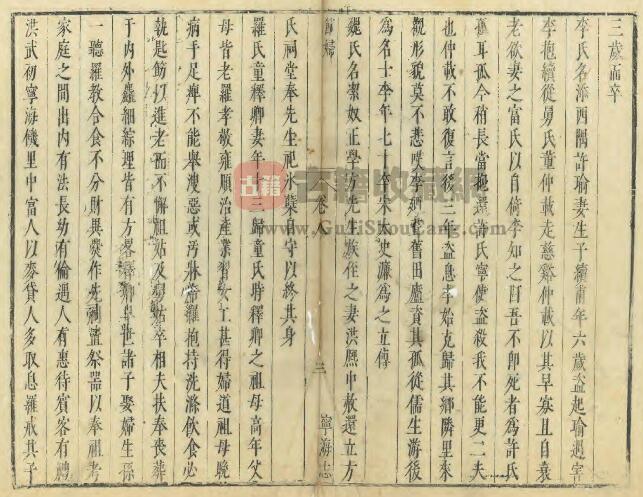 三歲而卒
李氏名添西隅許瑜妻生子續甫年六歲盜起瑜遇害
李抱續從舅氏童仲載走慈谿仲載以其早寡且自衰
老欲妻之富氏以自倚李知之曰吾不即死者為許氏
孤耳孤今稍長當抱還許氏寧使盜殺我不能更二夫
也仲載不敢復言後三年盜息李始克歸其鄉隣里來
觀形貌莫不悲嘆李綱舊田廬資其孤從儒生游後
為名士李年七十卒宋太史濂為之立傳
魏氏名潔奴正學方先生族侄之妻洪熙中赦還立方
氏祠堂奉先生祀氷蘗自守以終其身
節婦
卷八
三
寧海志
羅氏童釋卿妻年十三歸童氏時釋卿之祖母高年父
母皆老羅孝敬雍順治產業習女工甚得婦道祖母晚
病手足痺不能舉溲惡或汚牀常羅抱持洗滌飲食必
執匙筯以進老而不懈祖姑及舅姑卒相夫扶奉喪葬
于內外麤細綜理皆有方畧釋卿早世諸子娶婦生孫
一聽羅教令食不分財異爨作先祠置祭器以奉祖考
家庭之間出內有法長幼有倫遇人有惠待賓客有禮
洪武初寧海饑里中富人以麥貸人多取息羅戒其子
古籍收藏
www.GuJiShouCang.com